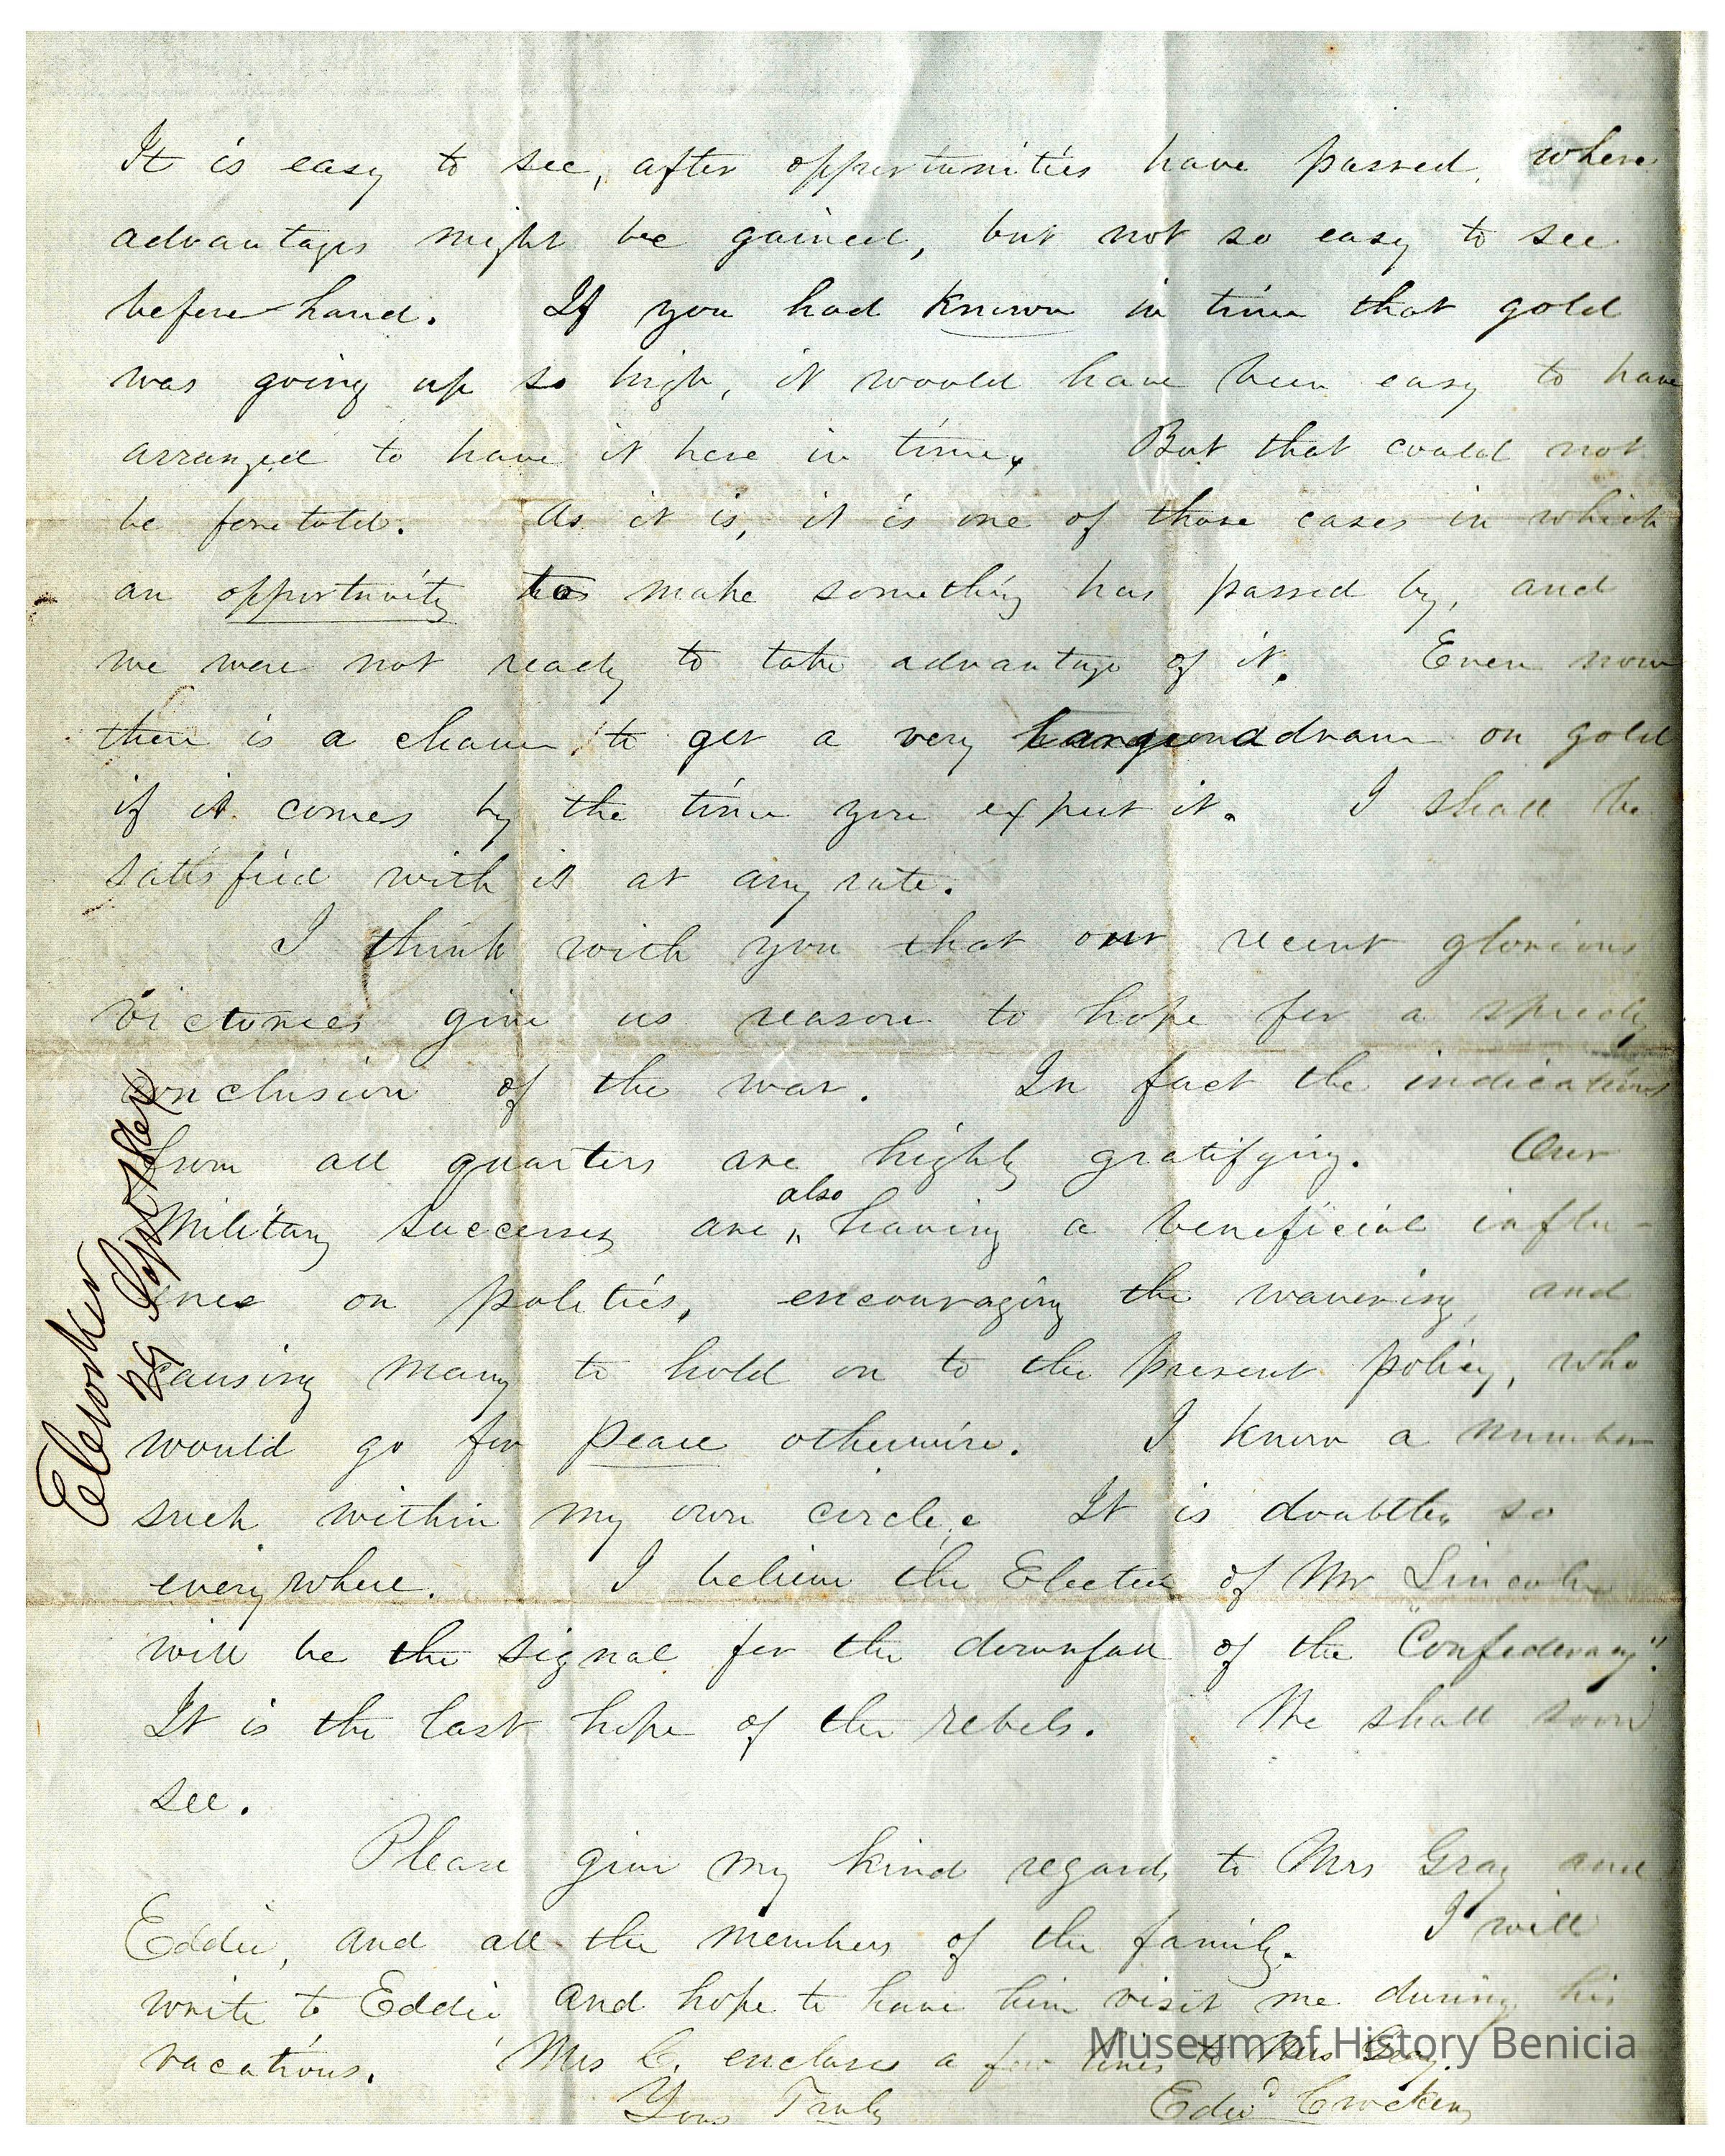 It is easy to see, after opportunities have passed, where
advantages might be gained, but not so easy to see
before hand. If you had known in time that gold
was going up so high, it would have been easy to have
arranged to have it here in time. But that could not
be foretold. As it is, it is one of those cases in which
an opportunity to make something has passed by, and
we were not ready to take advantage of it. Even now
there is a chance to get a very large advance on gold
if it comes by the time you expect it. I shall be
satisfied with it at any rate.
I think with you that our recent glorious
victories give us reason to hope for a speedy
conclusion of the war. In fact the indications
from all quarters are highly gratifying. Our
also
Military successes are having a beneficial influ-
ence on politics, encouraging the wavering, and
causing many to hold on to the present policy, who
would go for peace otherwise. I know a number
such within my own circle. It is doubtless so
everywhere. I believe the Election of Mr Lincoln
will be the signal for the downfall of the "Confederacy".
It is the last hope of the rebels. We shall soon
see.
Please give my kind regards to Mrs Gray and
Eddie, and all the members of the family. I will
write to Eddie and hope to have him visit me during his
vacations. Mrs C. encloses a few lines to Mrs Gray.
Yours Truly Edwd Crocker
29 Sept
Museum of History Benicia